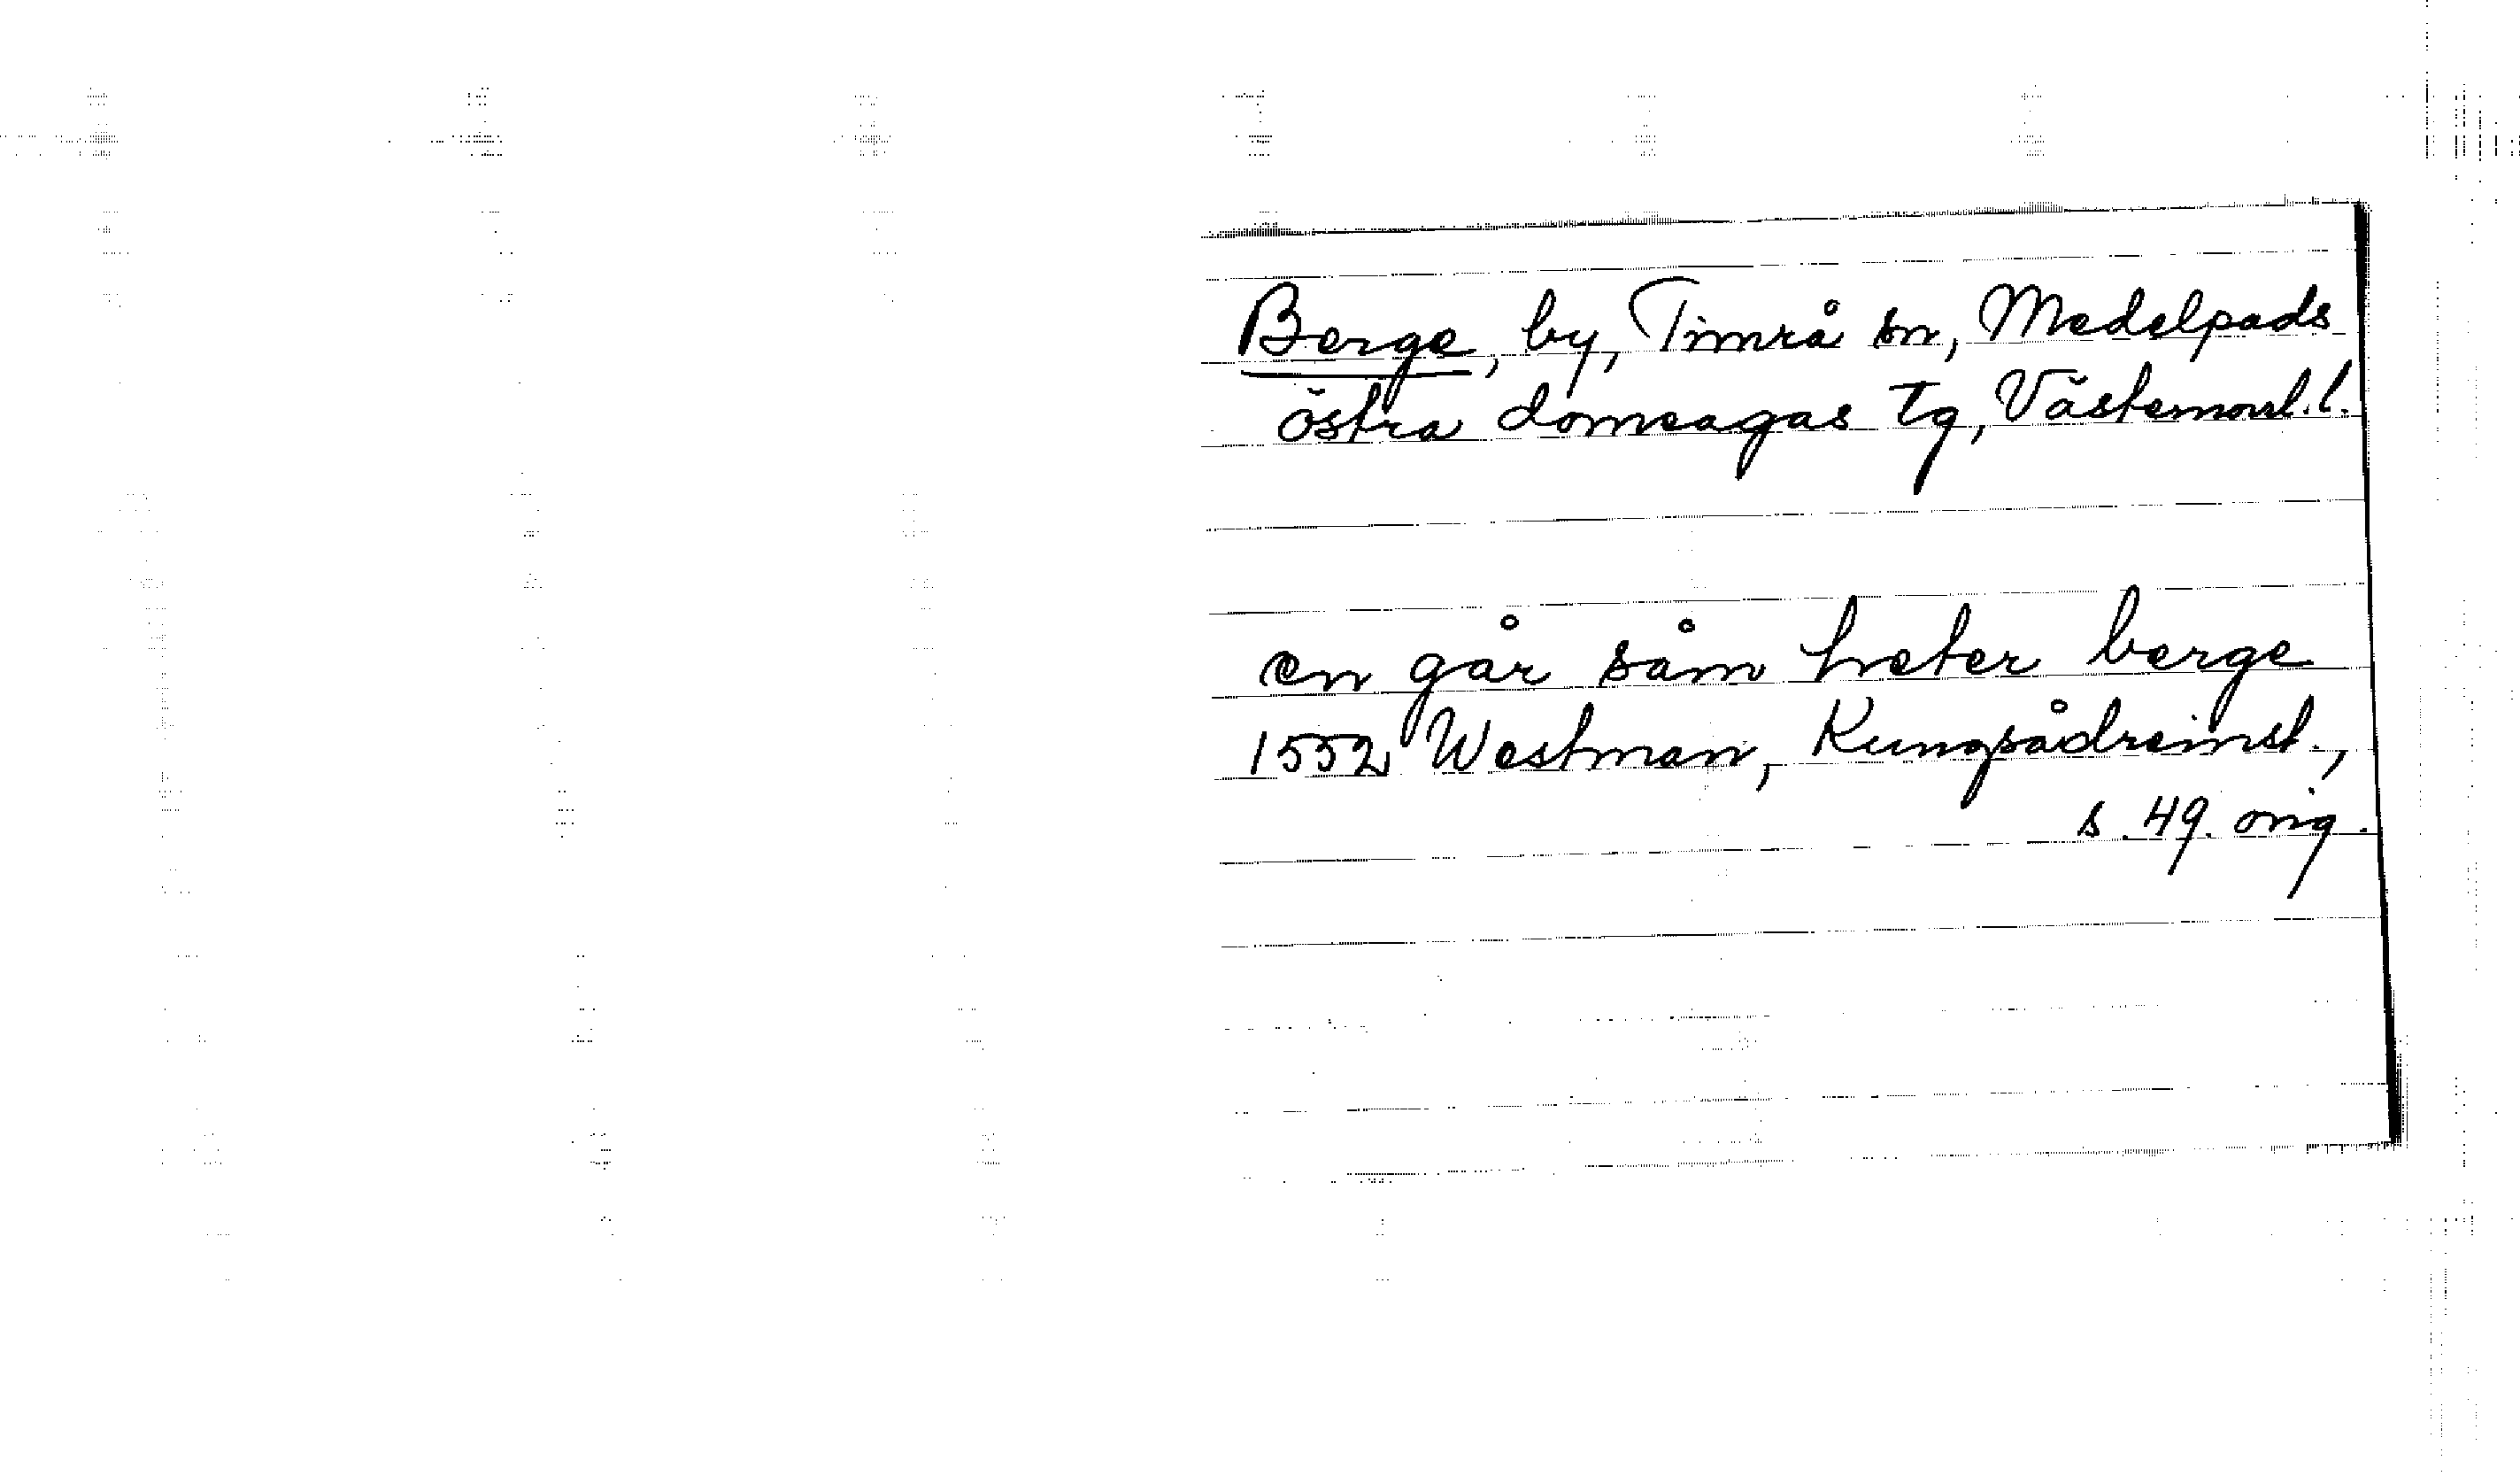 Berge, by, Timrå sn, Medelpads
östra domsagas tg, Västernorrl. l.
en går såm heter berge
1552 Westman, Kungsådreinst.,
s. 49. orig.